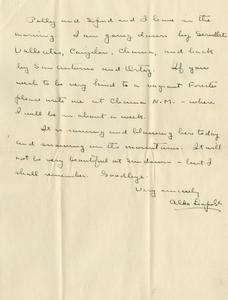 Polly and Spud and I leave in the
morning. I am going down by Servilleta
Vallecitos, Canjilon, Chama, and back
by San Antonio and Ortiz. If you
wish to be very kind to a vagrant Forester
please write me at Chama N.M. - where
I will be in about a week.
It is raining and blowing here today
and snowing on the mountains. It will
not be very beautiful at Sundown - but I
shall remember. Goodbye.
Very sincerely
Aldo Leopold